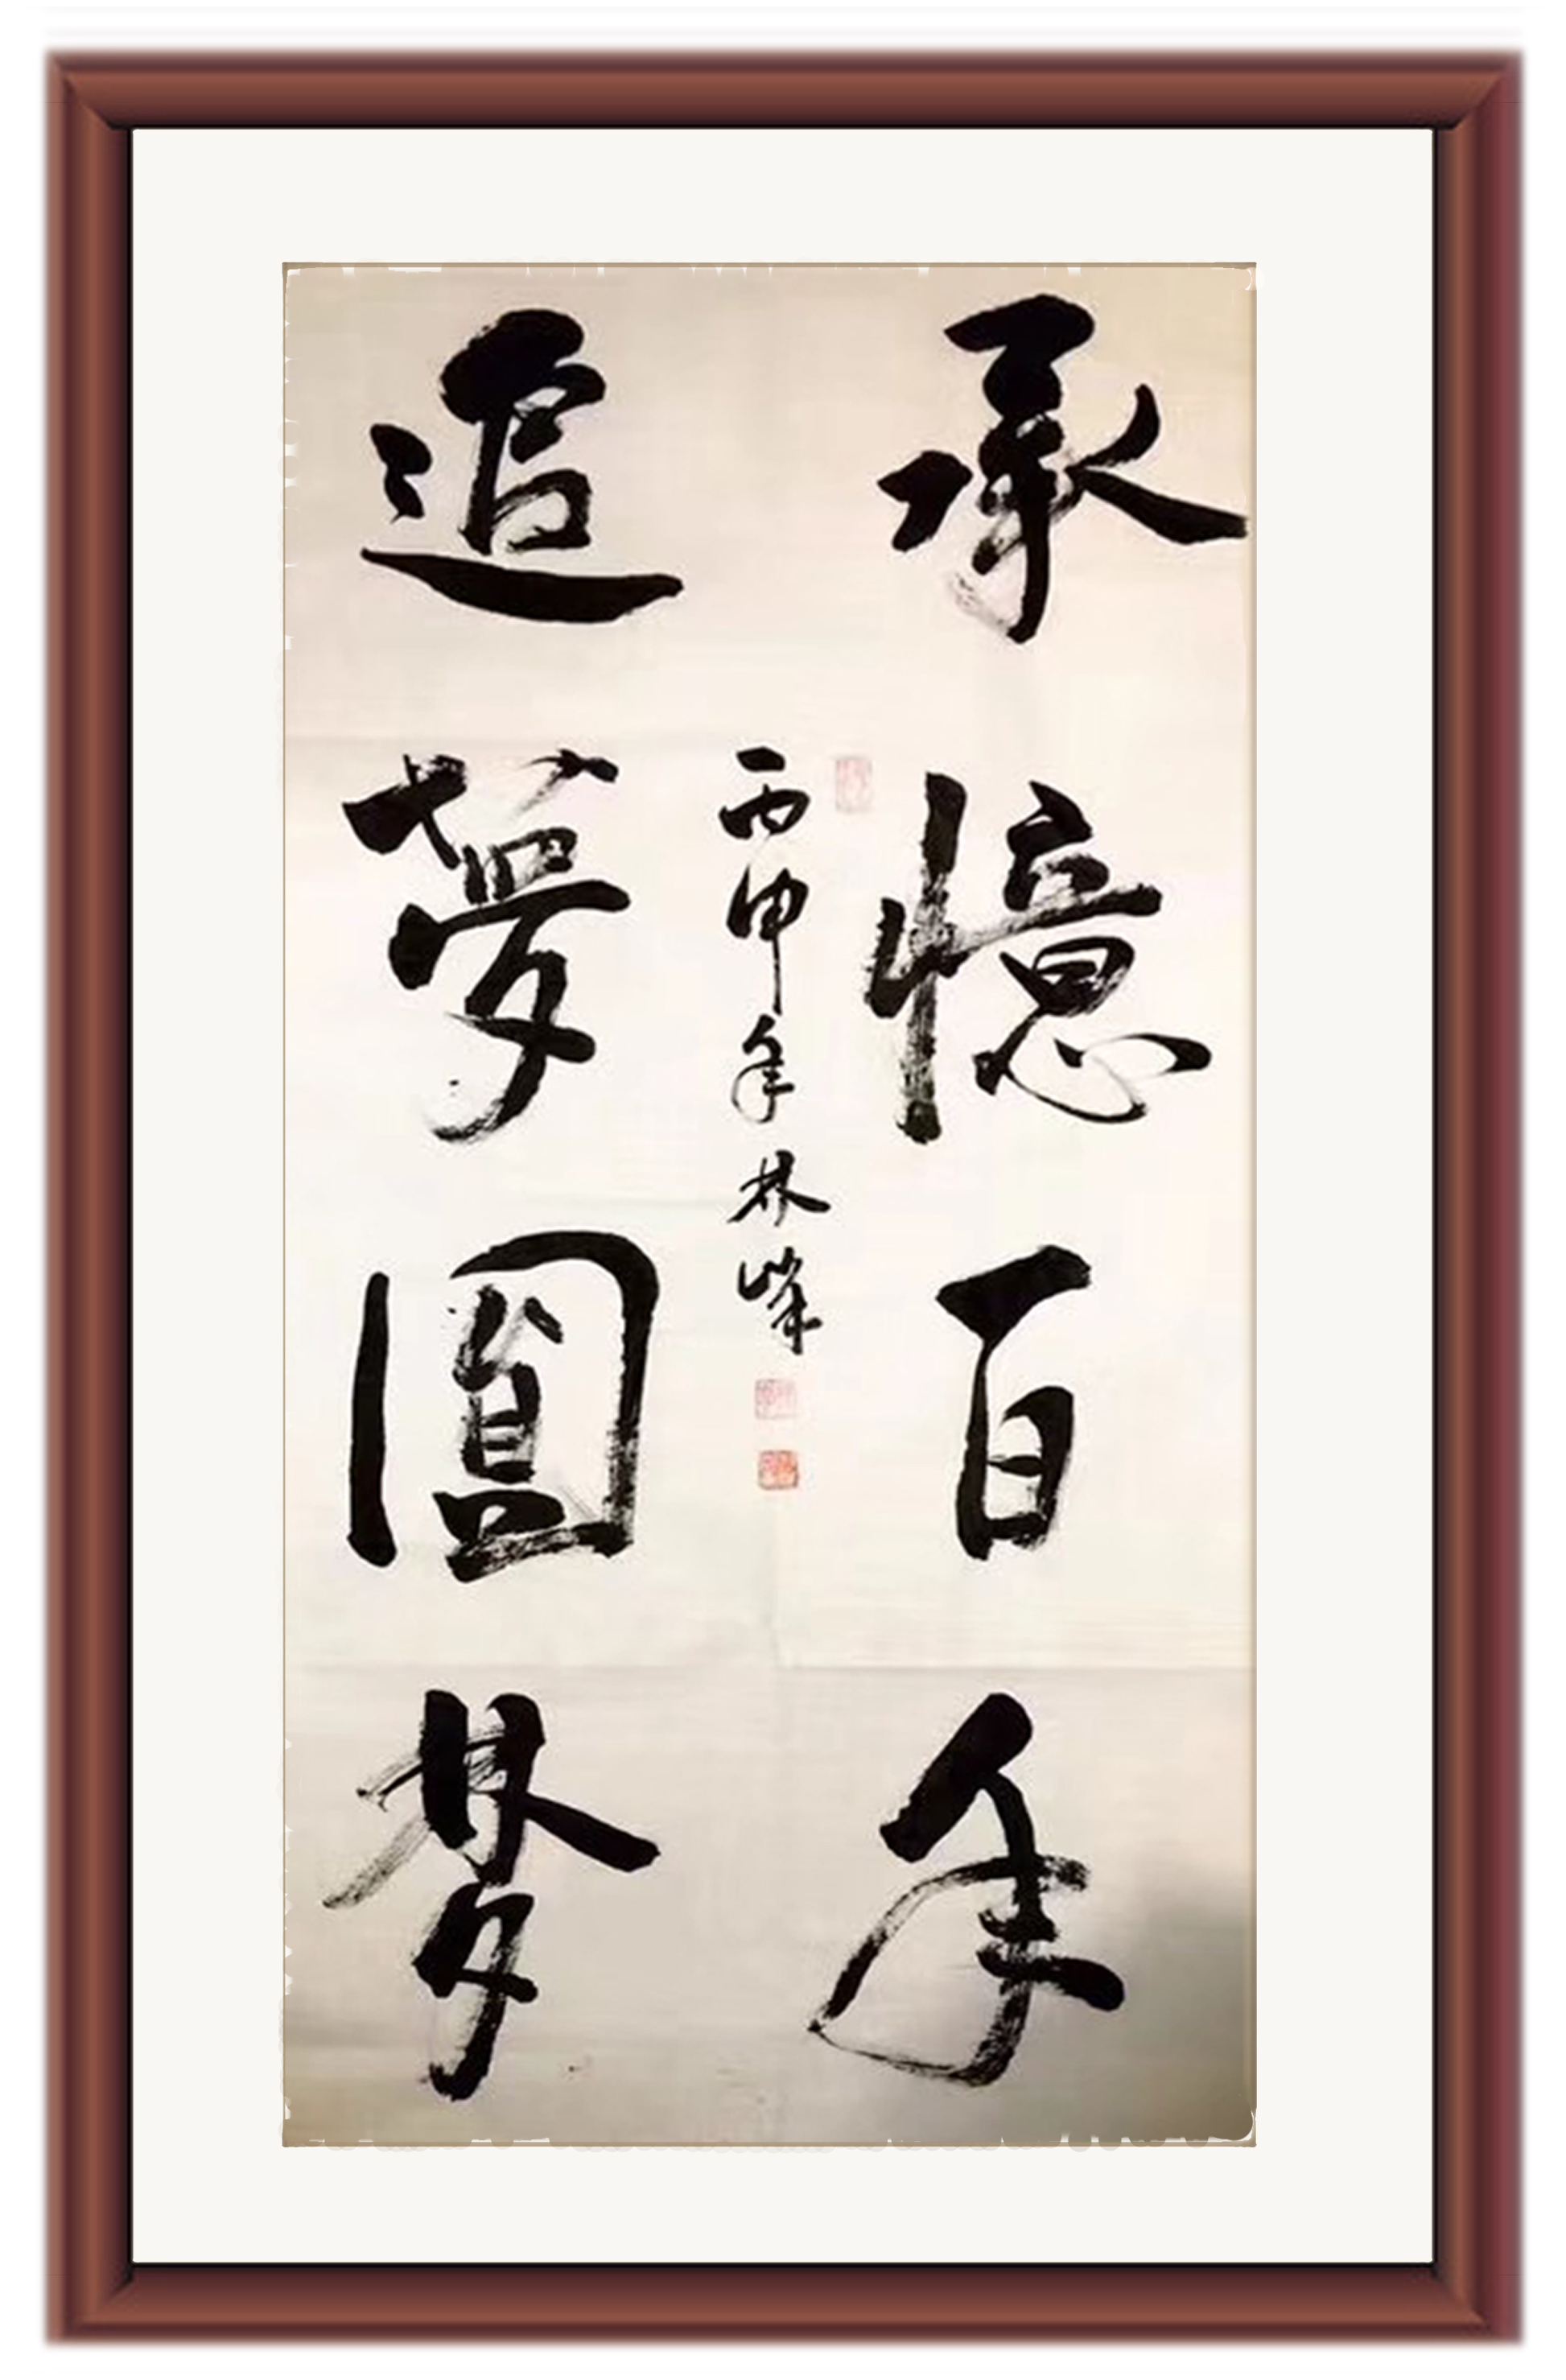 承憶百年
追夢圓梦
丙申年林峰